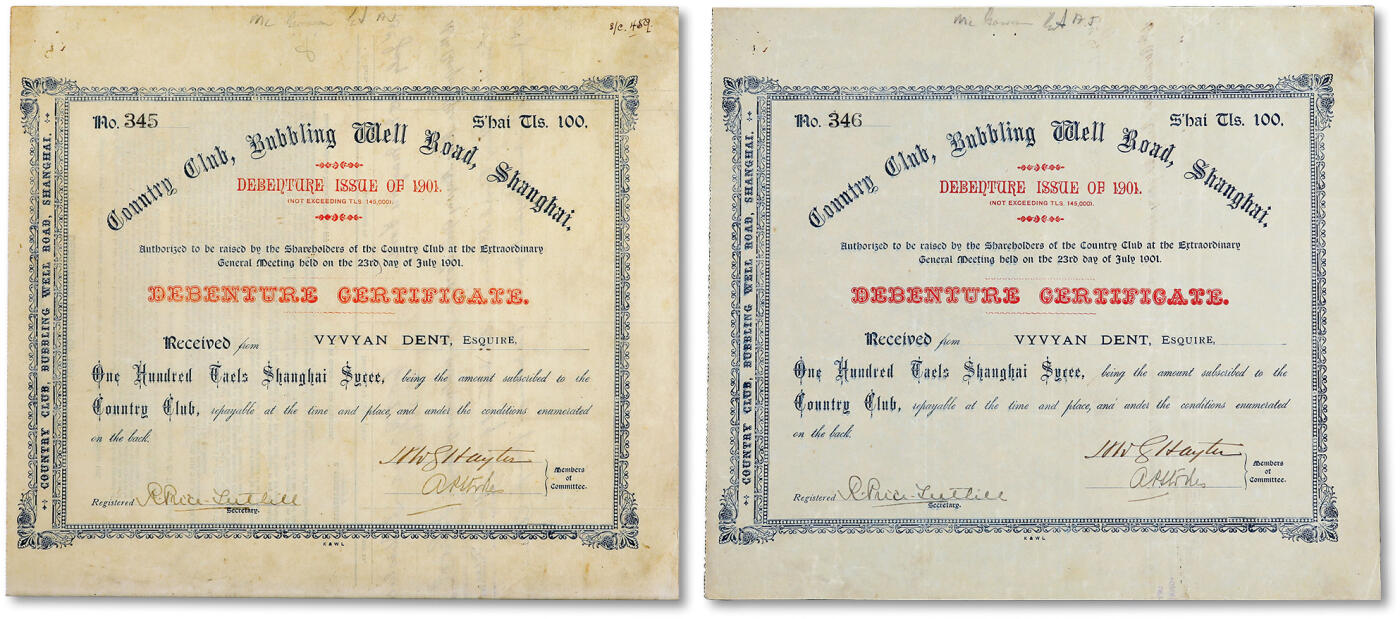 Mc Gowan
s/c. 459
No. 345
S'hai Tls. 100.
Country Club, Bubbling Well Road, Shanghai.
DEBENTURE ISSUE OF 1901.
(NOT EXCEEDING TLS. 145,000).
Authorized to be raised by the Shareholders of the Country Club at the Extraordinary
General Meeting held on the 23rd day of July 1901.
DEBENTURE CERTIFICATE.
Received from VYVYAN DENT, ESQUIRE,
One Hundred Taels Shanghai Sycee, being the amount subscribed to the
Country Club, repayable at the time and place, and under the conditions enumerated
on the back.
Hayter
Members
of
Committee.
Registered
Secretary.
COUNTRY CLUB, BUBBLING WELL ROAD, SHANGHAI.
K & W L
Mc Gowan
No. 346
S'hai Tls. 100.
Country Club, Bubbling Well Road, Shanghai.
DEBENTURE ISSUE OF 1901.
(NOT EXCEEDING TLS. 145,000).
Authorized to be raised by the Shareholders of the Country Club at the Extraordinary
General Meeting held on the 23rd day of July 1901.
DEBENTURE CERTIFICATE.
Received from VYVYAN DENT, ESQUIRE,
One Hundred Taels Shanghai Sycee, being the amount subscribed to the
Country Club, repayable at the time and place, and under the conditions enumerated
on the back.
Hayter
Members
of
Committee.
Registered
Secretary.
COUNTRY CLUB, BUBBLING WELL ROAD, SHANGHAI.
K & W L